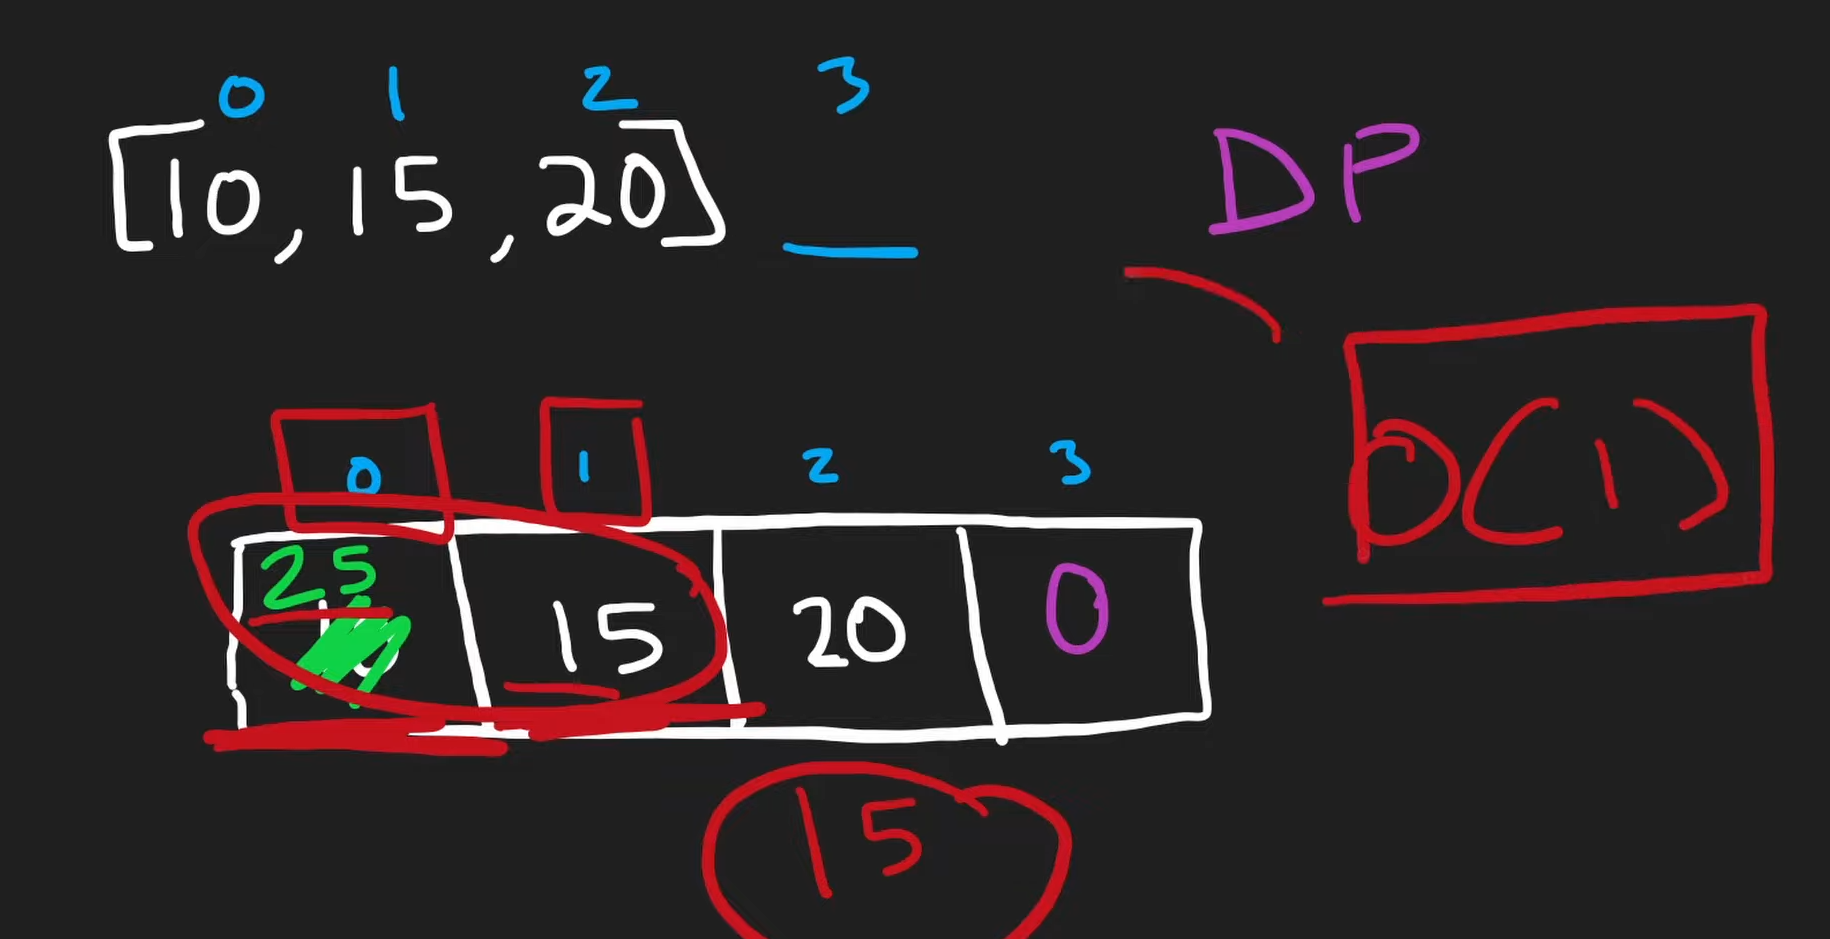 0 1 2 3
[10, 15, 20]
DP
O(1)
0 1 2 3
25
15 20 0
15